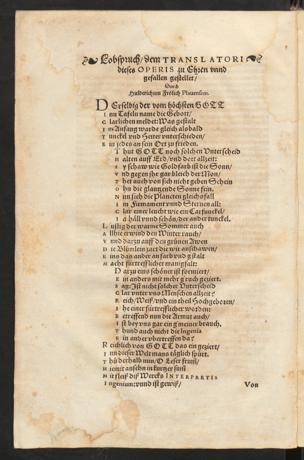 Lobspruch/ dem TRANSLATORI
dieses OPERIS zu Ehren vnnd
gefallen gestellet/
Durch
Huldrichum Frölich Plauensem.
DErselbig der vom höchsten GOTT
I nn Tafeln name die Gebott/
C larlichen meldet: Was gestalt
I m Anfang warde gleich alsbald
T unckel vnd Heiter vnterschieden/
I n jedes an sein Ort zu frieden.
T hut GOTT noch solchen Vnterscheid
H alten auff Erd/ vnd dort allzeit:
S y schaw wie Goldfarb ist die Sonn/
V nd gegen sie gar bleich der Mon/
T her auch von sich nicht geben Schein
O hn die glantzende Sonne sein.
N un sieh die Planeten gleichsfall
I m Firmament vnnd Sternen all:
C lar einer leucht wie ein Carfunckel/
I a häll vnnd schön/ der ander tunckel.
L ustig der warme Sommer auch
A llhie erwind den Winter rauch/
V nnd darzu auff den grünen Awen
D ie Blümlein zart die wir anschawen/
E ins das ander an farb vnd gstalt
M acht fürtrefflicher manigfalt:
D azu eins schöner ist formiert/
E in anders mit mehr gruch geziert.
S ag: Ist nicht solcher Vnterscheid
C lar vnter vns Menschen allzeit?
R eich/ Weiß/ vnd ein theil Hochgeboren/
I he einer fürtrefflicher worden:
B etreffend nun die Armut auch/
I st bey vns gar ein gmeiner brauch,
T hund auch nicht die Ingenia
E in ander vbertreffen da?
R eichlich von GOTT das ein geziert/
I nn dieser Welt mans täglich spürt.
T hů derhalb nun/ O Leser frum/
N iemit ansehn in kurtzer sum
M it fleiß diß Wercks INTERPRETIS
I ngenium: vnnd ist gewiß/
Von